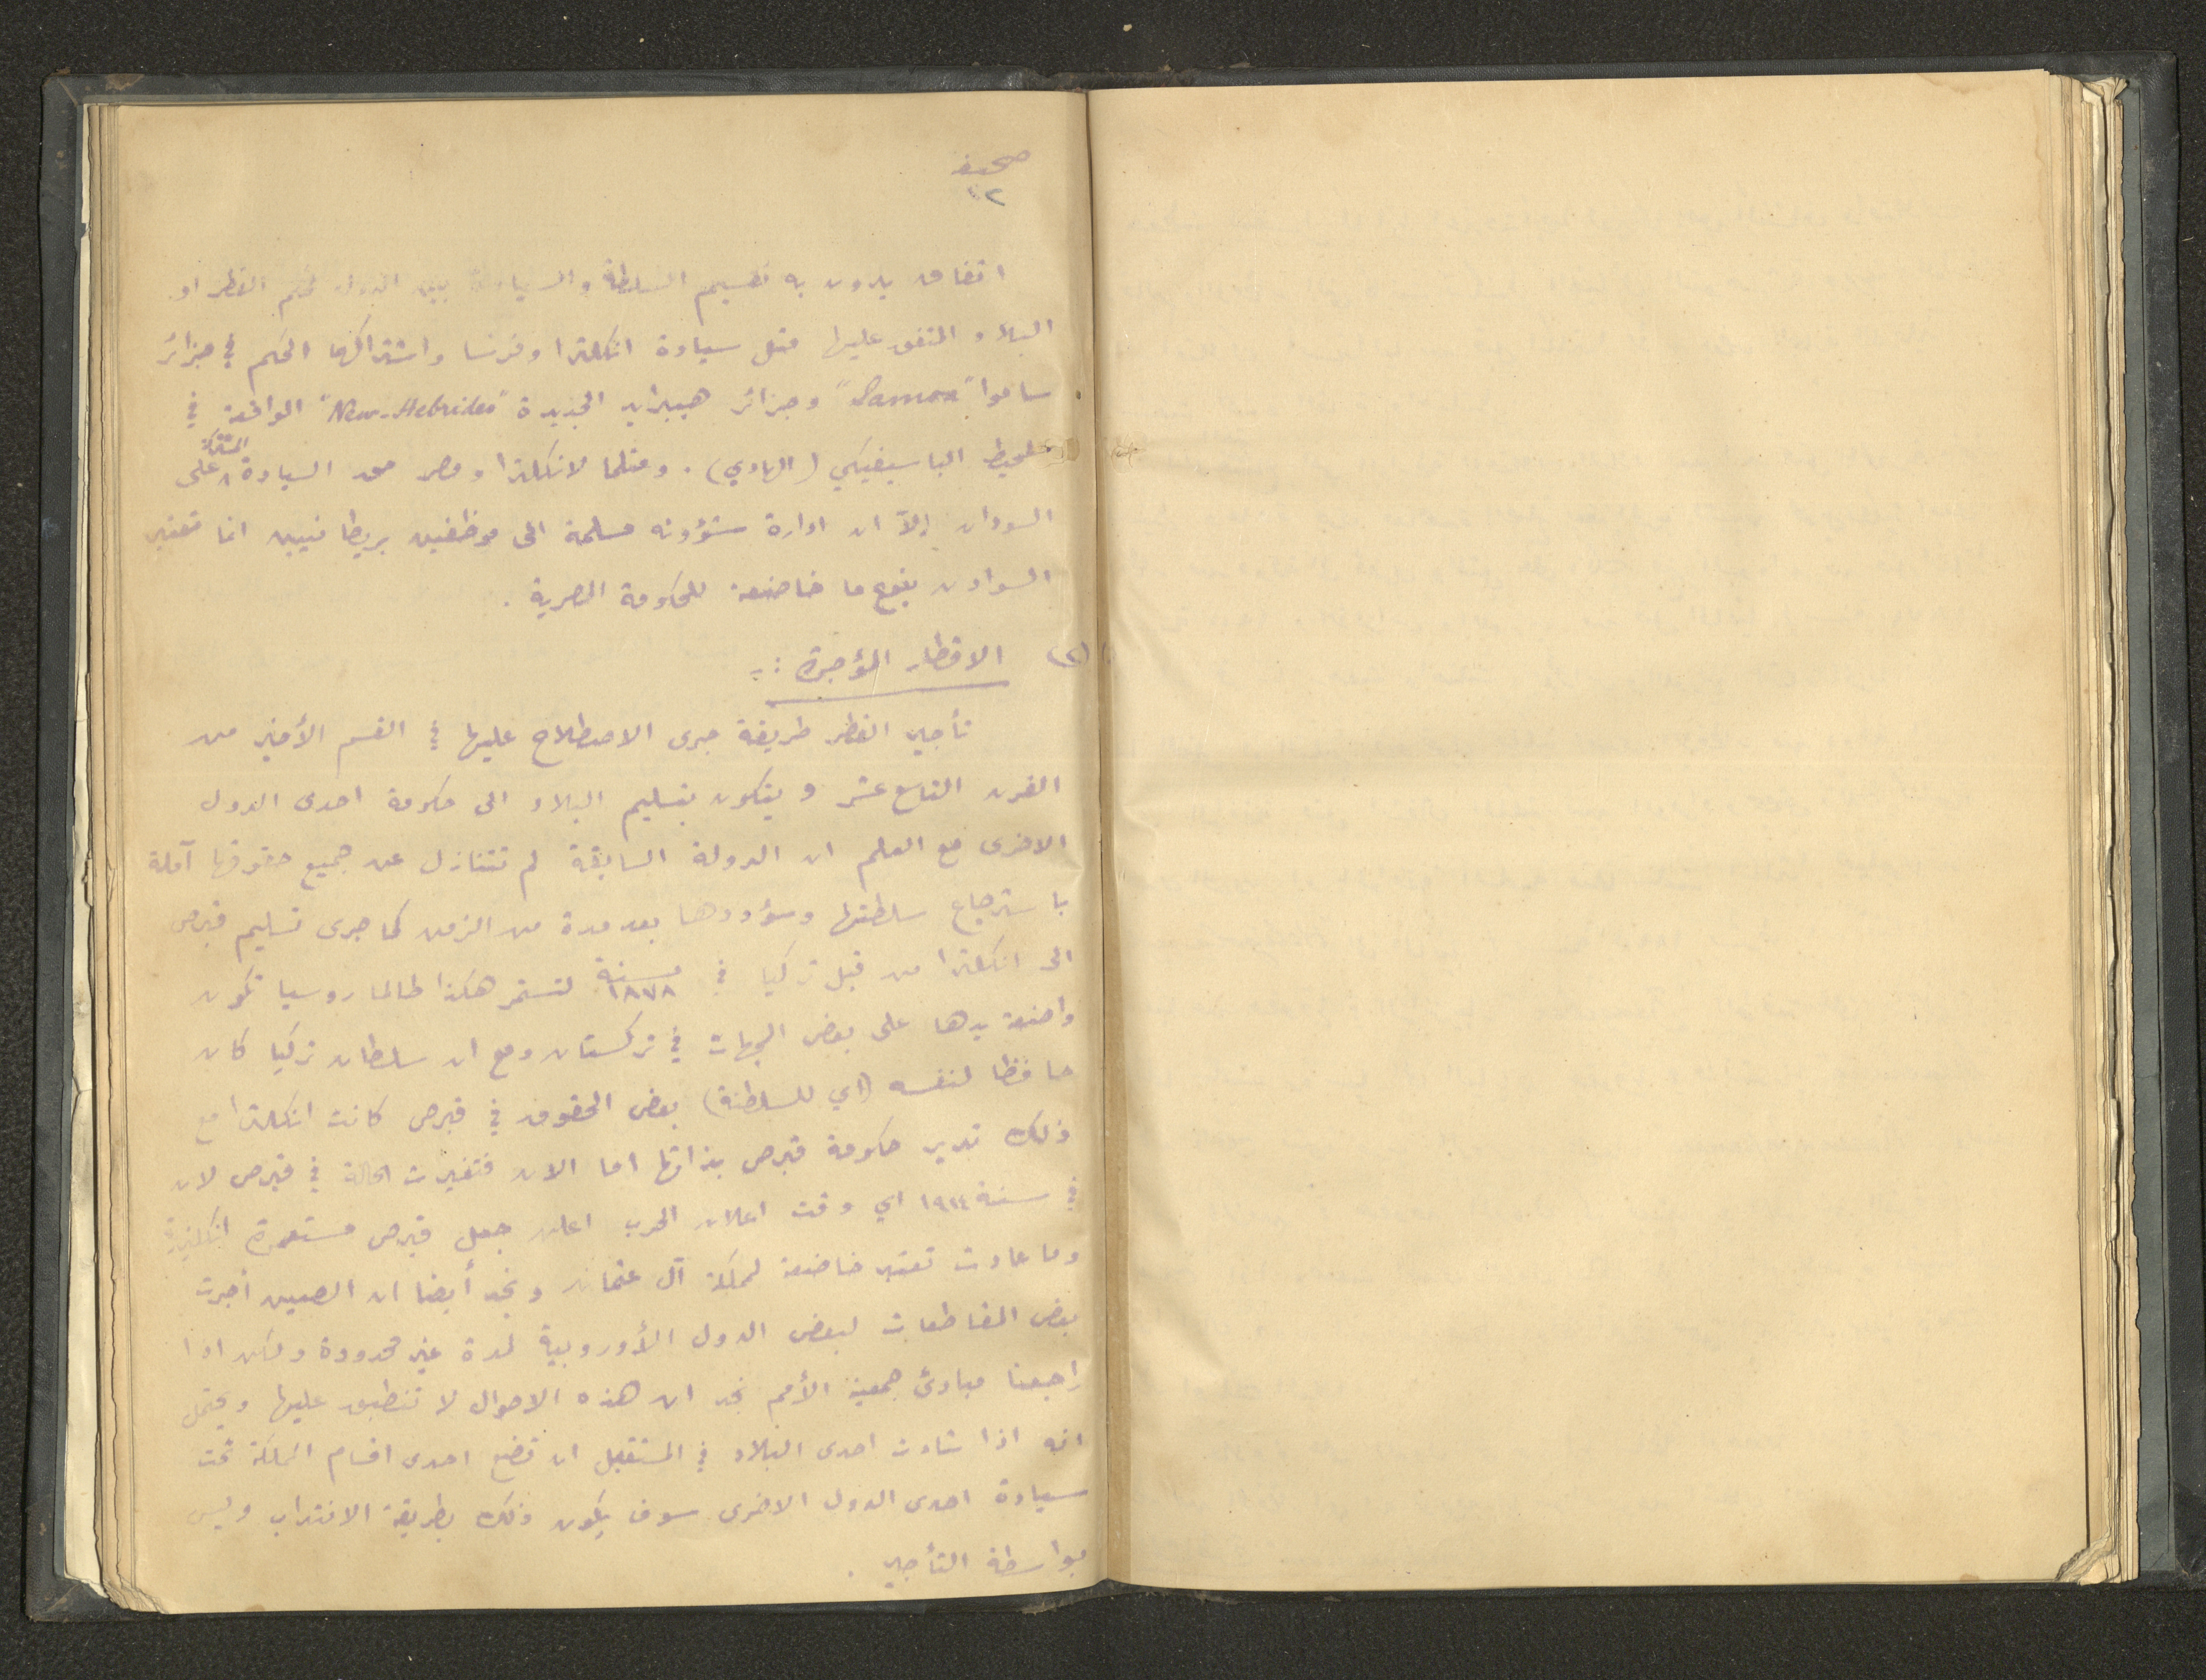 صحيفة
١٢
اتفاق يدون به تقسيم السلطة والسيادة بين الدول لحكم القطر او
البلاد المتفق عليها مثل سيادة انكلترا وفرنسا واشتراكهما الحكم في جزائر
ساموا "Samoa" وجزائر هيبرايد الجديدة "New-Hebrides" الواقعة في
المحيط الباسيفيكي (الهادي). ومثلما لانكلترا ومصر حق السيادة المشتركة على
السودان إلاّ ان ادارة شؤونه مسلمة الى موظفين بريطانيين انما تعتبر
السوادن بنوع ما خاضعة للحكومة المصرية.
(٢) الاقطار المؤجرة :-
تأجير القطر طريقة جرى الاصطلاح عليها في القسم الأخير من
القرن التاسع عشر ويتكون بتسليم البلاد الى حكومة احدى الدول
الاخرى مع العلم ان الدولة السابقة لم تتنازل عن جميع حقوقها آملة
باسترجاع سلطتها وسؤددها بعد مدة من الزمن كما جرى تسليم قبرص
الى انكلترا من قبل تركيا في سنة ١٨٧٨ لتستمر هكذا طالما روسيا تكون
واضعة يدها على بعض الجهات في تركستان ومع ان سلطان تركيا كان
حافظا لنفسه (اي للسلطنة) بعض الحقوق في قبرص كانت انكلترا مع
ذلك تدير حكومة قبرص بذاتها اما الان فتغيرت الحالة في قبرص لان
في سنة ١٩١٤ اي وقت اعلان الحرب اعلن جعل قبرص مستعمرة انكليزية
وما عادت تعتبر خاضعة لمملكة آل عثمان ونجد أيضا ان الصين أجرت
بعض المقاطعات لبعض الدول الأوروبية لمدة غير محدودة ولكن اذا
راجعنا مبادئ جمعية الأمم نجد ان هذه الاحوال لا تنطبق عليها ويحتمل
انه اذا شاءت احدى البلاد في المستقبل ان تضع احدى اقسام المملكة تحت
سيادة احدى الدول الاخرى سوف يكون ذلك بطريقة الانتداب وليس
بواسطة التأجير.